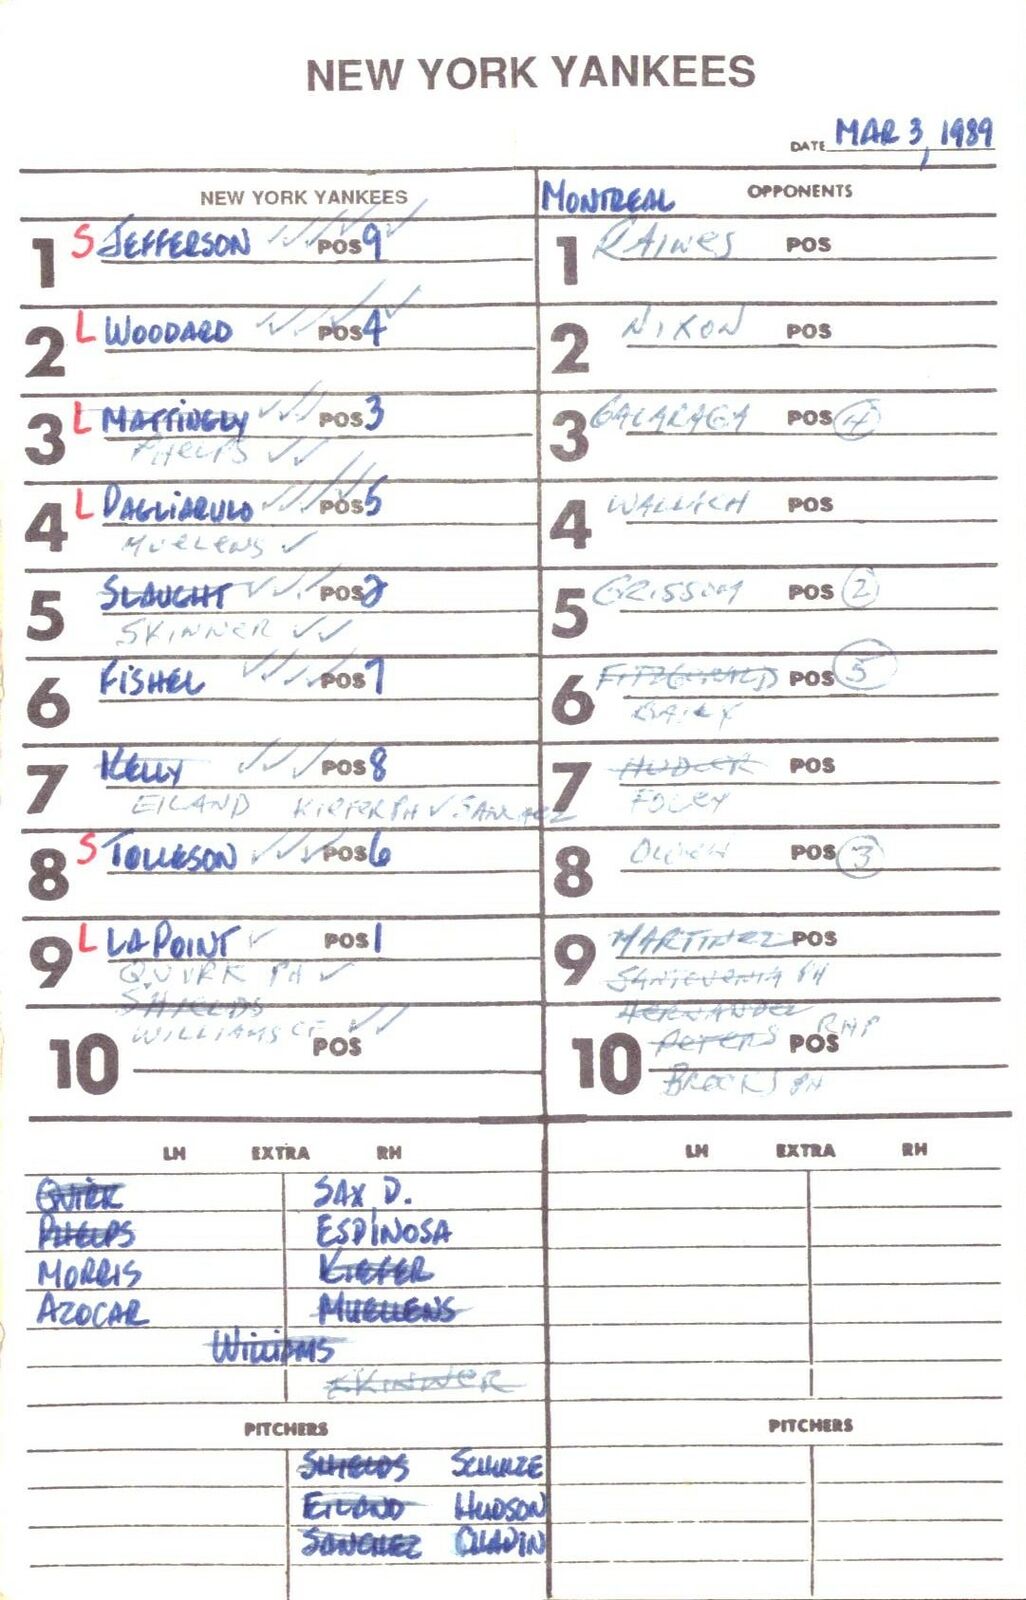 NEW YORK YANKEES
DATE MAR 3, 1989
NEW YORK YANKEES
1 S JEFFERSON POS 9
2 L WOODARD POS 4
3 L MATTINGLY POS 3
PHELPS
4 L PAGLIARULO POS 5
MUELENS
5 SLAUGHT POS 2
SKINNER
6 FISHEL POS 7
7 KELLY POS 8
EILAND KIEFER PH SANCHEZ
8 S TOLLESON POS 6
9 L LAPOINT POS 1
QUIRK PH
SHIELDS
WILLIAMS CF
10 POS
MONTREAL OPPONENTS
1 RAINES POS
2 NIXON POS
3 GALARAGA POS 4
4 WALLICH POS
5 GRISSOM POS 2
6 FITZGERALD POS 5
7 HUDLER POS
FOLEY
8 POS 3
9 MARTINEZ POS
PH
HERNANDEZ
10 PETERS RHP POS
BROOKS PH
LH EXTRA RH
QUIRK SAX D.
PHELPS ESPINOSA
MORRIS KIEFER
AZOCAR MUELLENS
WILLIAMS
SKINNER
PITCHERS
SHIELDS SCHULZE
EILAND HUDSON
SANCHEZ
LH EXTRA RH
PITCHERS